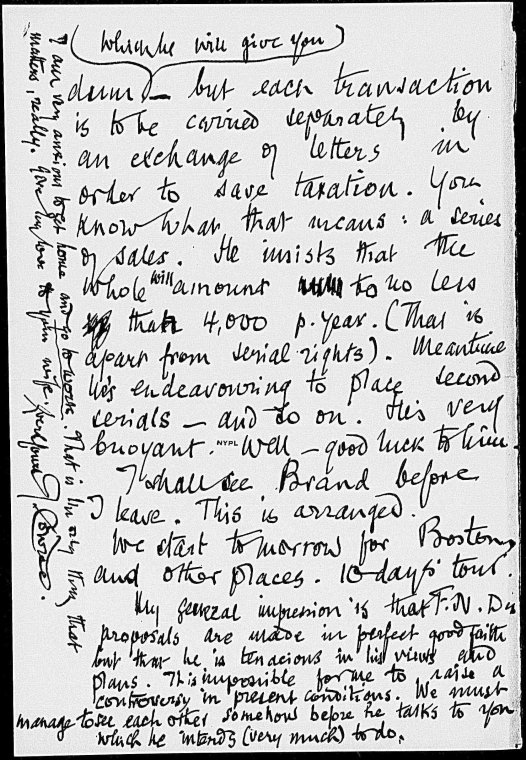 (which he will give you)
— but each transaction
is to be carried separately by
an exchange of letters in
order to save taxation. You
know what that means: a series
of sales. He insists that the
whole will amount to no less
than 4,000 p. year. (That is
apart from serial rights). Meantime
He's endeavouring to place second
serials — and so on. He's very
buoyant. NYPL Well — good luck to him.
I shall see Brand before
I leave. This is arranged.
We start to morrow for Boston
and other places. 10 days' tour.
My general impression is that F. N. D's
proposals are made in perfect good faith
but that he is tenacious in his views and
plans. It is impossible for me to raise a
controversy in present conditions. We must
manage to see each other somehow before he talks to you
which he intends (very much) to do.
I am very anxious to get home and go to work. That is the only thing that
matters, really. Give my love to your wife. Conrad.